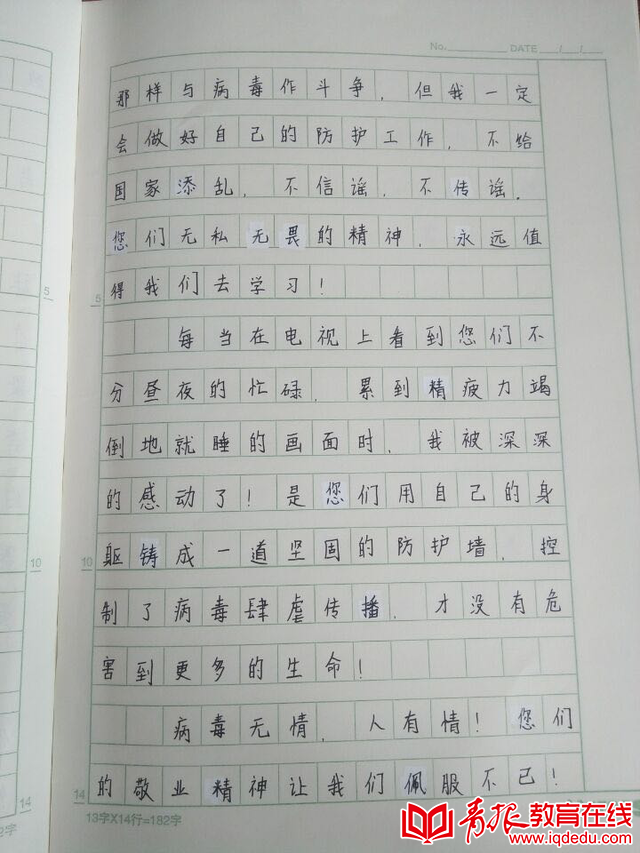 No. DATE / /
那样与病毒作斗争，但我一定
会做好自己的防护工作，不给
国家添乱，不信谣，不传谣．
您们无私无畏的精神，永远值
5 得我们去学习！ 5
每当在电视上看到您们不
分昼夜的忙碌，累到精疲力竭
倒地就睡的画面时，我被深深
的感动了！是您们用自己的身
10 躯铸成一道坚固的防护墙，控 10
制了病毒肆虐传播，才没有危
害到更多的生命！
病毒无情，人有情！您们
14 的敬业精神让我们佩服不已！ 14
13字X14行=182字
2字
青报教育在线
www.iqdedu.com